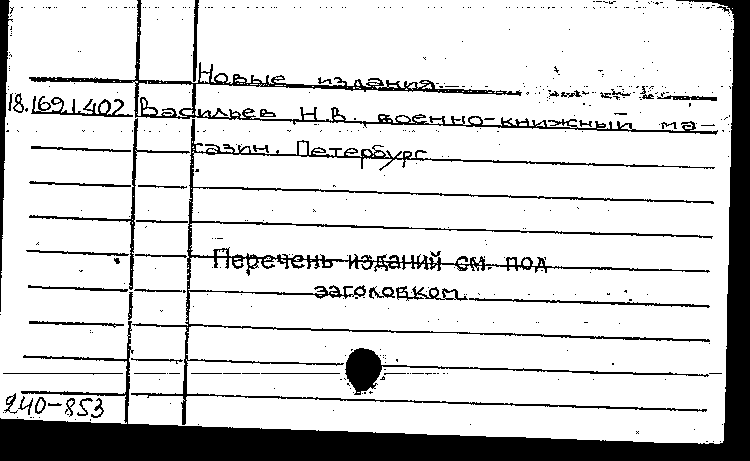 Новые издания
18.169.1.402 Васильев, Н.В., военно-книжный ма-
газин. Петербург
Перечень изданий см. под
заголовком.
240-853